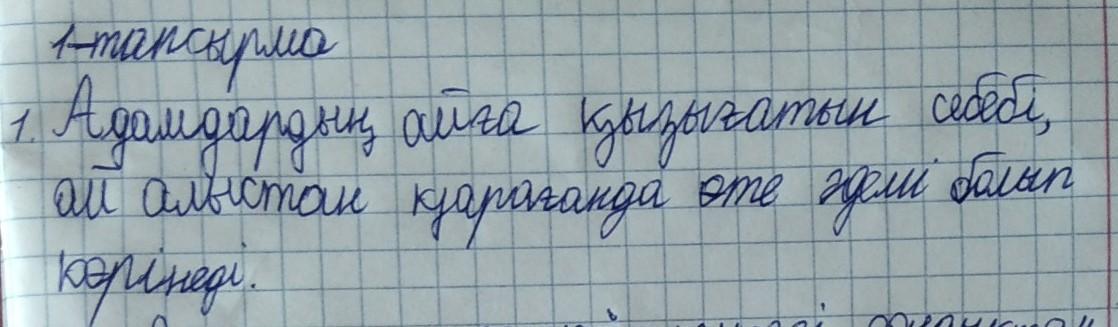 1-тапсырма
1. Адамдардың айға қызығатын себебі,
ай алыстан қарағанда өте әдемі болып
көрінеді.